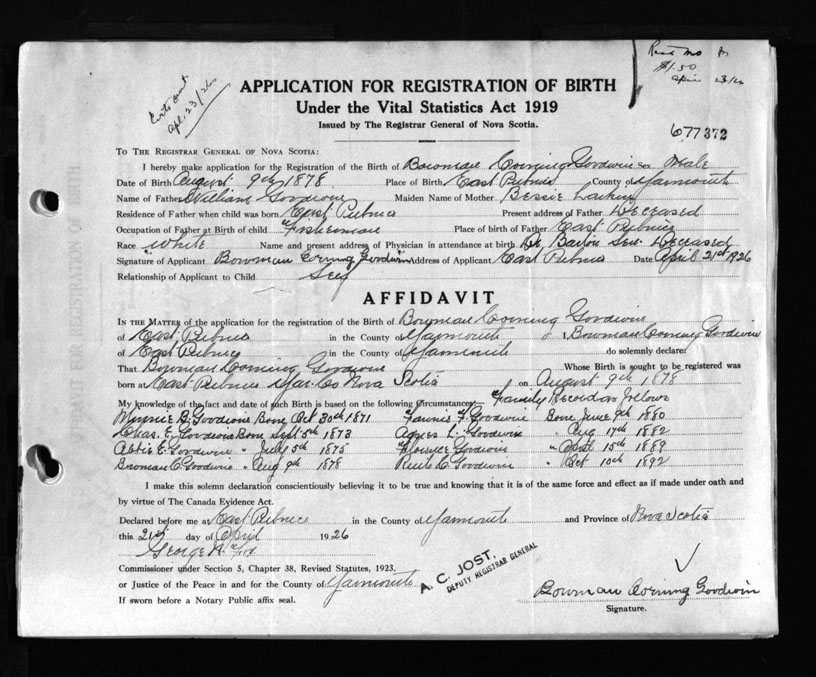 Recd MO
$1.50
Apr 23/26
Certs sent
Apl. 23/26
APPLICATION FOR REGISTRATION OF BIRTH
Under the Vital Statistics Act 1919
Issued by The Registrar General of Nova Scotia.
677372
TO THE REGISTRAR GENERAL OF NOVA SCOTIA:
I hereby make application for the Registration of the Birth of Bowman Corning Goodwin Sex Male
Date of Birth August 9th 1878 Place of Birth East Pubnico County of Yarmouth
Name of Father William Goodwin Maiden Name of Mother Bessie Larkin
Residence of Father when child was born East Pubnico Present address of Father Deceased
Occupation of Father at Birth of child Fisherman Place of birth of Father East Pubnico
Race White Name and present address of Physician in attendance at birth Dr. Sen. Deceased
Signature of Applicant Bowman Corning Goodwin Address of Applicant East Pubnico Date April 21st 1926
Relationship of Applicant to Child Self
AFFIDAVIT
IN THE MATTER of the application for the registration of the Birth of Bowman Corning Goodwin
of East Pubnico in the County of Yarmouth I, Bowman Corning Goodwin
of East Pubnico in the County of Yarmouth do solemnly declare
That Bowman Corning Goodwin Whose Birth is sought to be registered was
born at East Pubnico Yar. Co Nova Scotia on August 9th 1878
My knowledge of the fact and date of such Birth is based on the following Circumstances: Family Record as follows
Minnie B. Goodwin Born Oct 30th 1871 Fannie F. Goodwin Born June 9th 1880
Chas. E. Goodwin Born Sept 5th 1873 Agnes L. Goodwin " Aug 17th 1882
Abbie E. Goodwin " July 5th 1875 Goodwin " Sept 15th 1889
Bowman C. Goodwin " Aug 9th 1878 C. Goodwin " Oct 10th 1892
I make this solemn declaration conscientiously believing it to be true and knowing that it is of the same force and effect as if made under oath and
by virtue of The Canada Evidence Act.
Declared before me at East Pubnico in the County of Yarmouth and Province of Nova Scotia
this 21st day of April 1926
George H.
Commissioner under Section 5, Chapter 38, Revised Statutes, 1923.
or Justice of the Peace in and for the County of Yarmouth
If sworn before a Notary Public affix seal.
A. C. JOST,
DEPUTY REGISTRAR GENERAL
Bowman Corning Goodwin
Signature.